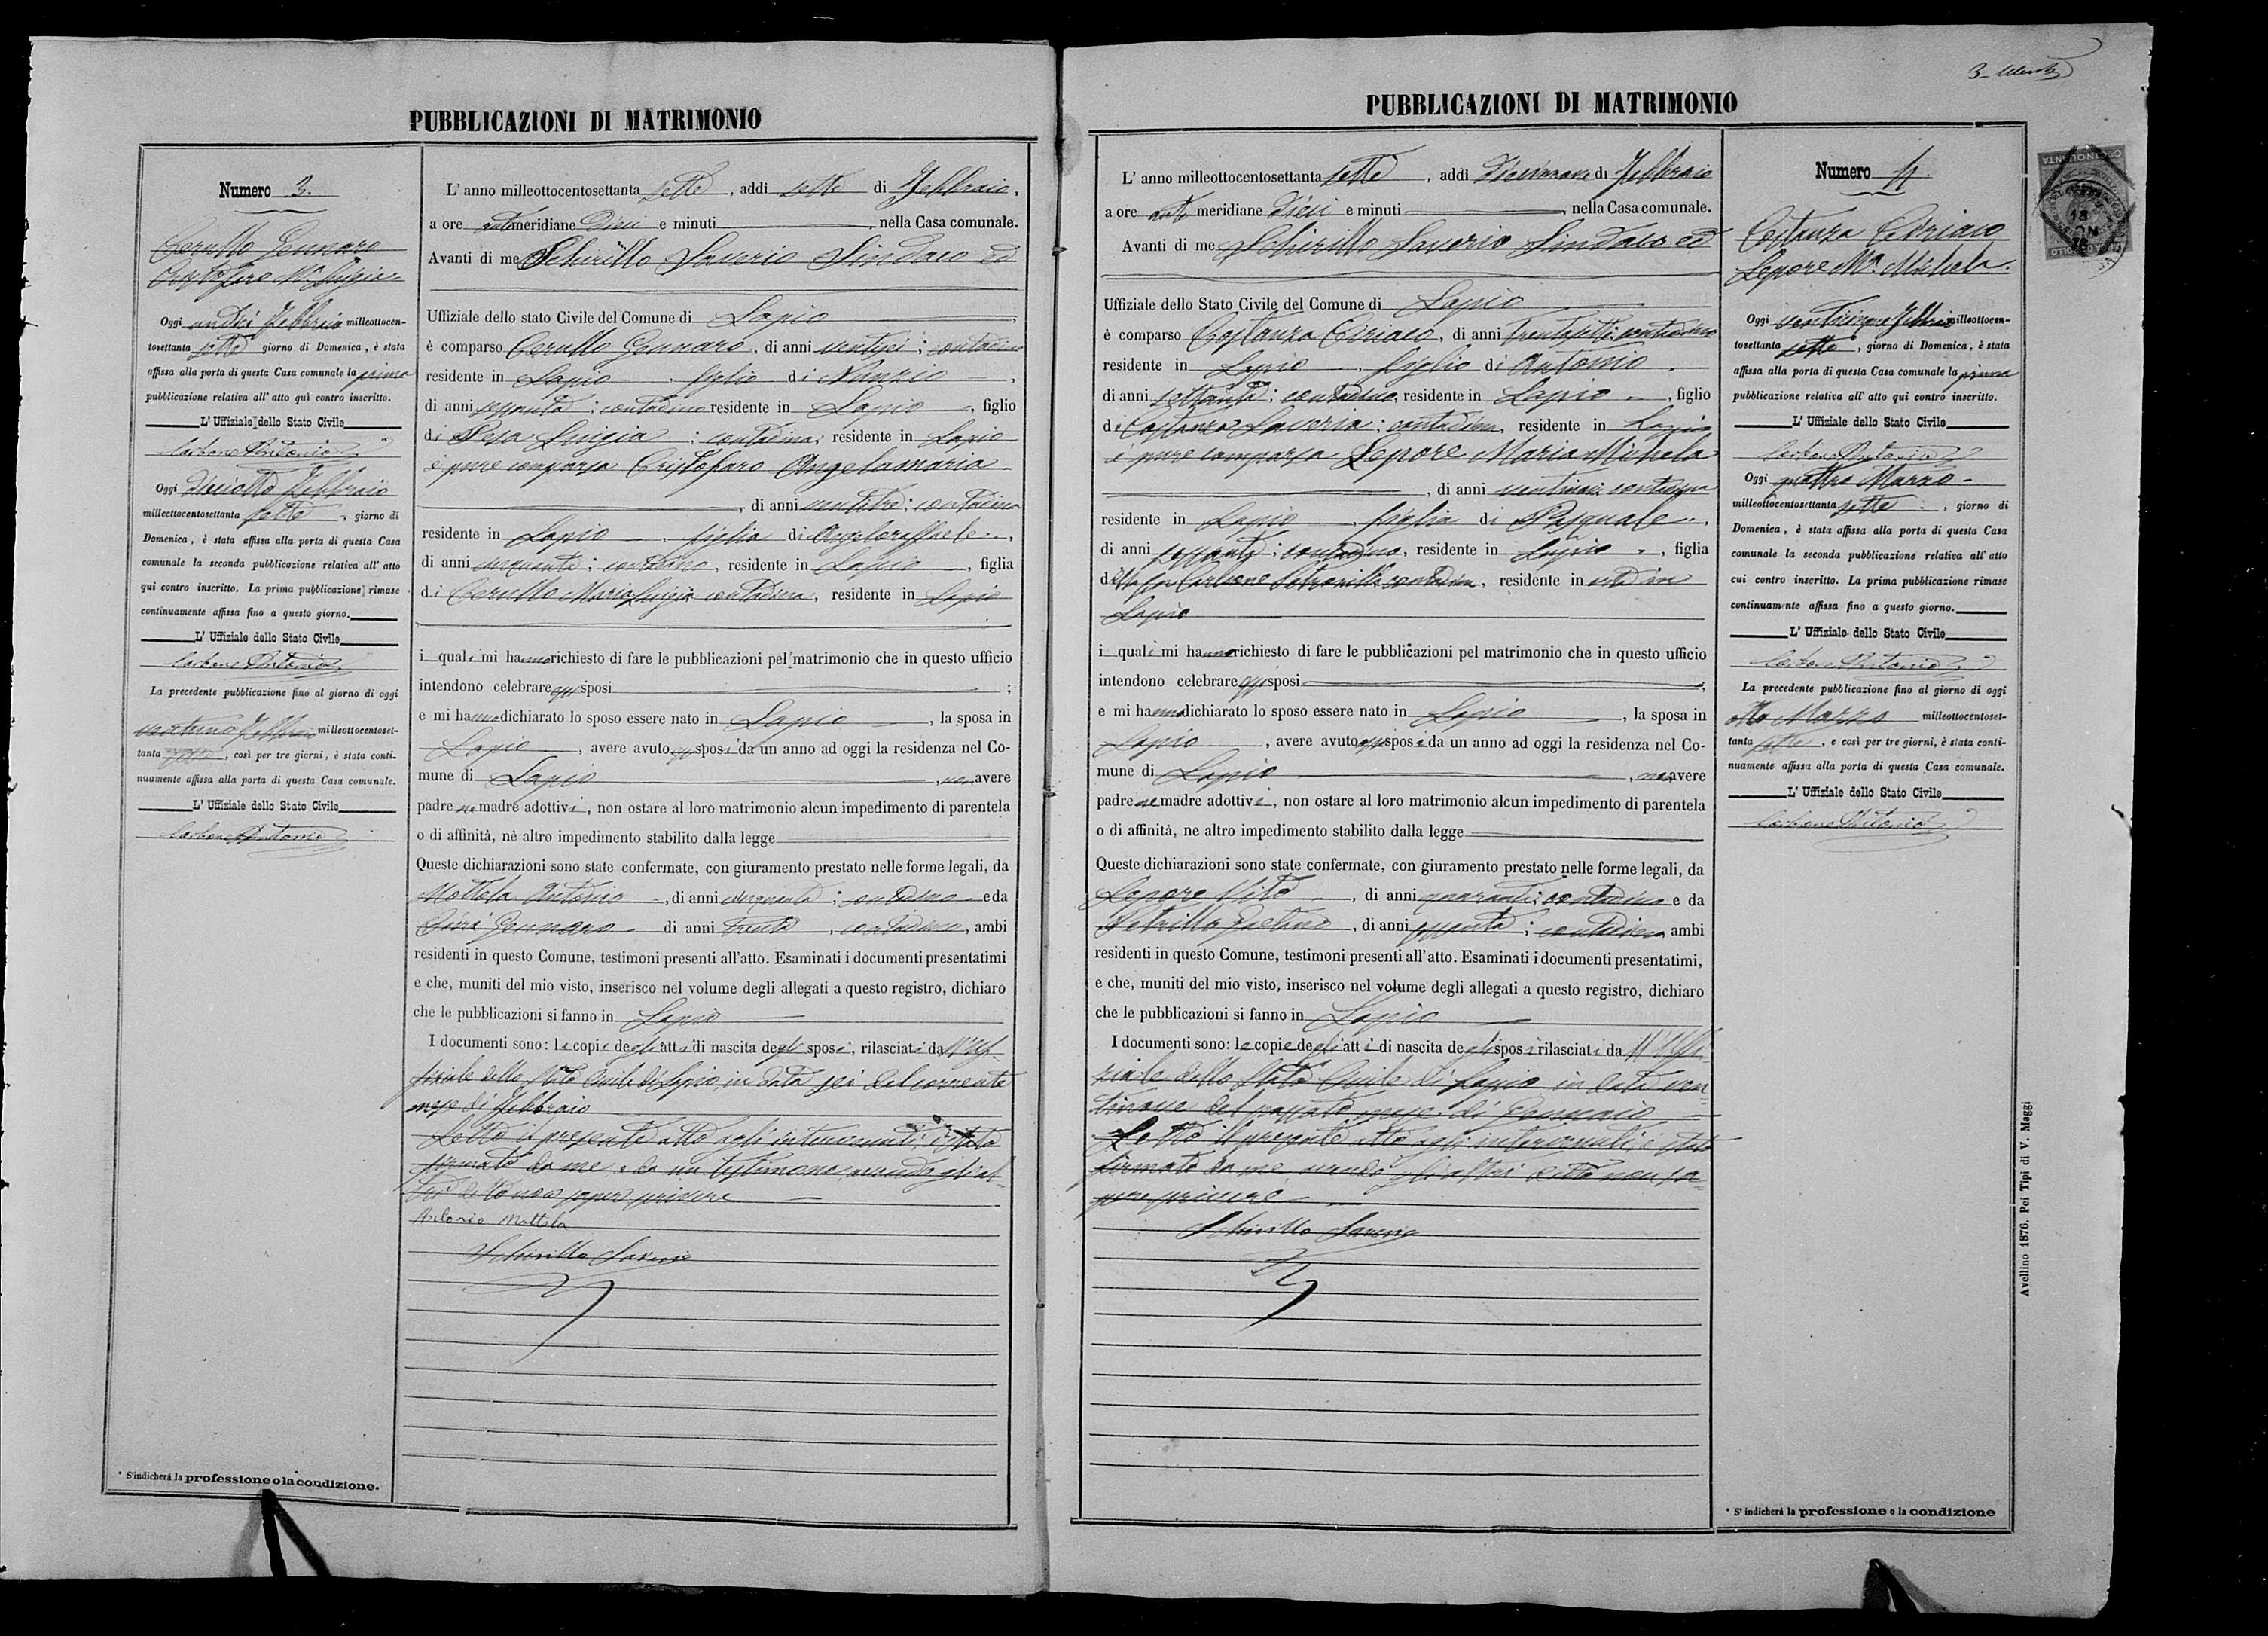 PUBBLICAZIONI DI MATRIMONIO
Numero 3.
Cerullo Gennaro
Cristofaro Mª Luigia
Oggi undici Febbraio milleottocen-
tosettanta sette giorno di Domenica, è stata
affissa alla porta di questa Casa comunale la prima
pubblicazione relativa all' atto quì contro inscritto.
L' Uffiziale dello Stato Civile
Carbone Antonio
Oggi diciotto Febbraio
milleottocentosettanta sette, giorno di
Domenica, è stata affissa alla porta di questa Casa
comunale la seconda pubblicazione relativa all' atto
qui contro inscritto. La prima pubblicazione rimase
continuamente affissa fino a questo giorno.
L' Uffiziale dello Stato Civile
Carbone Antonio
La precedente pubblicazione fino al giorno di oggi
ventuno Febbraio milleottocentoset-
tanta sette, così per tre giorni, è stata conti-
nuamente affissa alla porta di questa Casa comunale.
L' Uffiziale dello Stato Civile
Carbone Antonio
* S'indicherà la professione o la condizione.
L' anno milleottocentosettanta sette, addì sette di Febbraio,
a ore antimeridiane dieci e minuti, nella Casa comunale.
Avanti di me Schirillo Saverio Sindaco ed
Uffiziale dello stato Civile del Comune di Lapio,
è comparso Cerullo Gennaro, di anni ventisei; contadino
residente in Lapio, figlio di Nunzio,
di anni sessanta; contadino residente in Lapio, figlio
di Pesa Luigia; contadina; residente in Lapio
è pure comparsa Cristofaro Angelamaria
, di anni ventitre; contadina
residente in Lapio, figlia di Angeloraffaele,
di anni cinquanta; contadino, residente in Lapio, figlia
di Cerullo Maria Luigia contadina, residente in Lapio
i quali mi hanno richiesto di fare le pubblicazioni pel matrimonio che in questo ufficio
intendono celebrare essi sposi;
e mi hanno dichiarato lo sposo essere nato in Lapio, la sposa in
Lapio, avere avuto essi sposi da un anno ad oggi la residenza nel Co-
mune di Lapio, non avere
padre ne madre adottivi, non ostare al loro matrimonio alcun impedimento di parentela
o di affinità, nè altro impedimento stabilito dalla legge
Queste dichiarazioni sono state confermate, con giuramento prestato nelle forme legali, da
Mottola Antonio, di anni cinquanta; contadino e da
Gennaro di anni trenta, contadino, ambi
residenti in questo Comune, testimoni presenti all'atto. Esaminati i documenti presentatimi
e che, muniti del mio visto, inserisco nel volume degli allegati a questo registro, dichiaro
che le pubblicazioni si fanno in Lapio
I documenti sono: le copie degli atti di nascita degli sposi, rilasciati da l'Uf-
fiziale dello Stato Civile di Lapio in data sei del corrente
mese di Febbraio
Letto il presente atto agli intervenuti è stato
firmato da me e da un testimone, avendo gli al-
tri detto non saper scrivere
Antonio Mottola
Schirillo Saverio
3-
PUBBLICAZIONI DI MATRIMONIO
L' anno milleottocentosettanta sette, addì diecinnove di Febbraio
a ore antimeridiane dieci e minuti, nella Casa comunale.
Avanti di me Schirillo Saverio Sindaco ed
Uffiziale dello Stato Civile del Comune di Lapio
è comparso Costanza Ciriaco, di anni trentasette; contadino
residente in Lapio, figlio di Antonio,
di anni settanta; contadino, residente in Lapio, figlio
di Costanza Saveria; contadina, residente in Lapio
è pure comparsa Lepore Maria Michela
, di anni contadina
residente in Lapio, figlia di Pasquale,
di anni sessanta; contadino, residente in Lapio, figlia
della fu Carbone Petronilla contadina, residente in vita in
Lapio
i quali mi hanno richiesto di fare le pubblicazioni pel matrimonio che in questo ufficio
intendono celebrare essi sposi;
e mi hanno dichiarato lo sposo essere nato in Lapio, la sposa in
Lapio, avere avuto essi sposi da un anno ad oggi la residenza nel Co-
mune di Lapio, non avere
padre ne madre adottivi, non ostare al loro matrimonio alcun impedimento di parentela
o di affinità, ne altro impedimento stabilito dalla legge
Queste dichiarazioni sono state confermate, con giuramento prestato nelle forme legali, da
Lepore Vito, di anni quaranta; contadino e da
Petrillo Gaetano, di anni sessanta; contadino ambi
residenti in questo Comune, testimoni presenti all'atto. Esaminati i documenti presentatimi,
e che, muniti del mio visto, inserisco nel volume degli allegati a questo registro, dichiaro
che le pubblicazioni si fanno in Lapio
I documenti sono: le copie degli atti di nascita degli sposi rilasciati da l'Uffi-
ziale dello Stato Civile di Lapio in data ven-
tinove del passato mese di Gennaio
Letto il presente atto agli intervenuti è stato
firmato da me avendo gli altri detto non sa-
pere scrivere
Schirillo Saverio
Numero 4
Costanza Ciriaco
Lepore Mª Michela
Oggi venticinque Febbraio milleottocen-
tosettanta sette, giorno di Domenica, è stata
affissa alla porta di questa Casa comunale la prima
pubblicazione relativa all' atto qui contro inscritto.
L' Uffiziale dello Stato Civile
Carbone Antonio
Oggi quattro Marzo
milleottocentosettanta sette, giorno di
Domenica, è stata affissa alla porta di questa Casa
comunale la seconda pubblicazione relativa all' atto
cui contro inscritto. La prima pubblicazione rimase
continuamente affissa fino a questo giorno.
L' Uffiziale dello Stato Civile
Carbone Antonio
La precedente pubblicazione fino al giorno di oggi
otto Marzo milleottocentoset-
tanta sette, e così per tre giorni, è stata conti-
nuamente affissa alla porta di questa Casa comunale.
L' Uffiziale dello Stato Civile
Carbone Antonio
* S' indicherà la professione o la condizione
Avellino 1876. Pei Tipi di V. Maggi